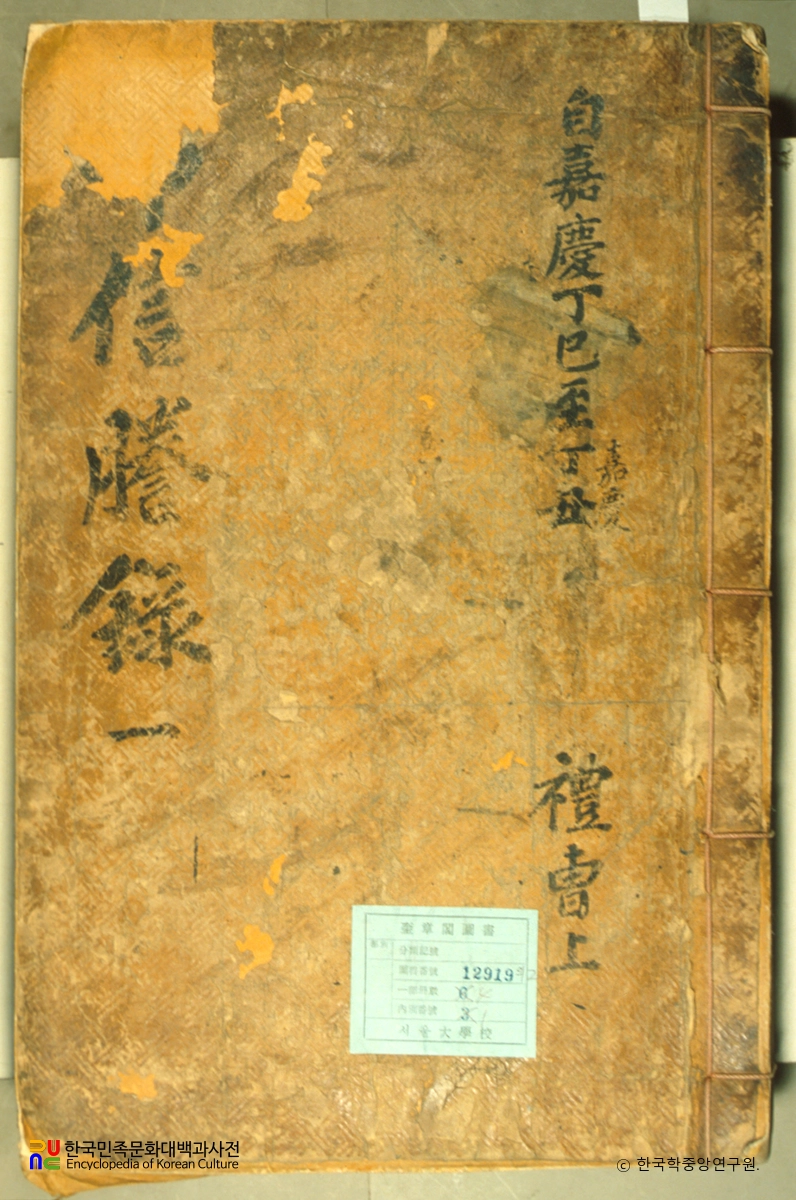 自嘉慶丁巳至丁丑
嘉慶
禮曹上
信謄錄一
奎章閣圖書
分類記號
圖書番號 12919
一部冊數 6
內次番號 3
서울大學校
한국민족문화대백과사전
Encyclopedia of Korean Culture
© 한국학중앙연구원.